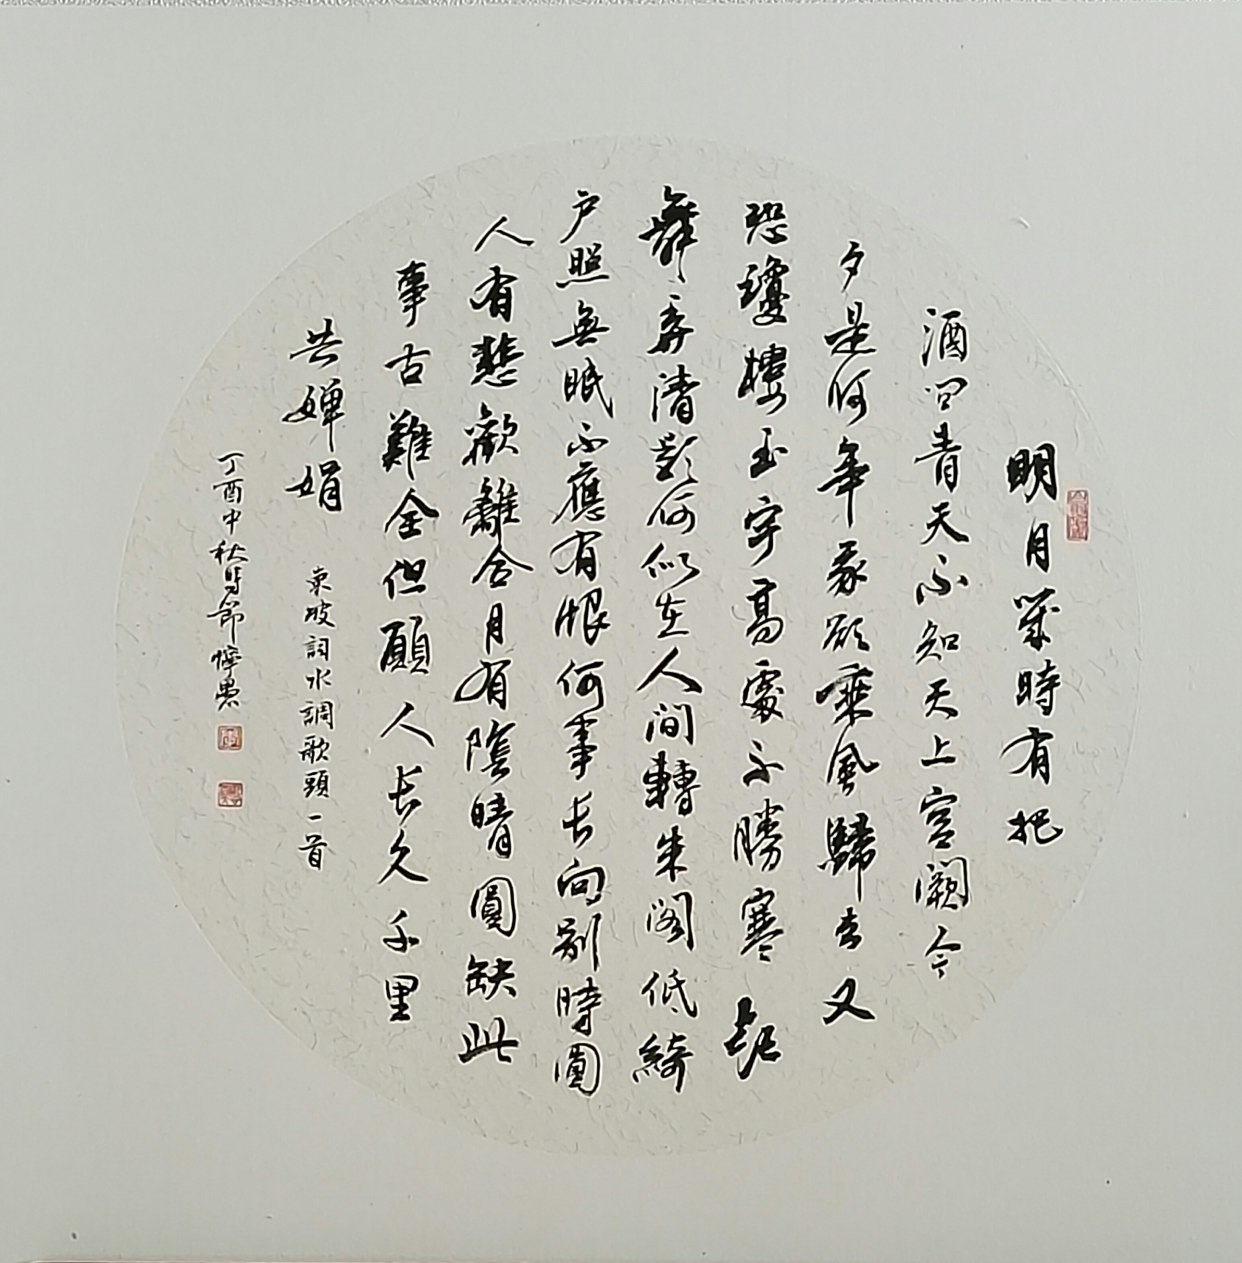 明月幾時有把
酒問青天不知天上宮闕今
夕是何年我欲乘風歸去又
恐瓊樓玉宇高處不勝寒起
舞弄清影何似在人間轉朱閣低綺
户照無眠不應有恨何事长向别時圓
人有悲歡離合月有陰晴圓缺此
事古難全但願人长久千里
共嬋娟
東坡詞水調歌頭一首
丁酉中秋